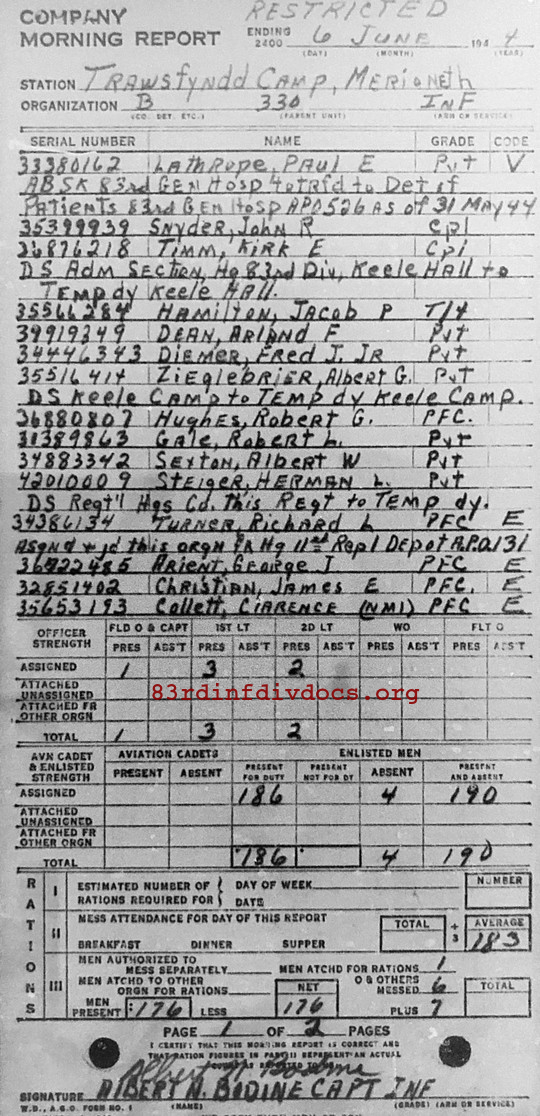 RESTRICTED
COMPANY
MORNING REPORT
ENDING 2400 6 JUNE 1944
(DAY) (MONTH) (YEAR)
STATION TRAWSFYNDD CAMP, MERIONETH
ORGANIZATION B 330 INF
(CO. DET. ETC.) (PARENT UNIT) (ARM OR SERVICE)
SERIAL NUMBER NAME GRADE CODE
33380162 LATHROPE, PAUL E Pvt V
ABSK 83rd GEN HOSP to trfd to Det of
Patients 83rd GEN HOSP APO 526 AS of 31 MAY 44
35399939 SNYDER, JOHN R Cpl
36876218 TIMM, KIRK E Cpl
DS Adm SECTION, Hq 83rd Div, KEELE HALL to
TEMP dy KEELE HALL.
35566284 HAMILTON, JACOB P T/4
39919349 DEAN, ARLAND F Pvt
34446343 DIEMER, FRED J. JR Pvt
35516414 ZIEGLEBRIER, ALBERT G. Pvt
DS KEELE CAMP to TEMP dy KEELE CAMP.
36880807 HUGHES, ROBERT G. PFC.
31389863 GALE, ROBERT L. Pvt
34883342 SEXTON, ALBERT W Pvt
42010009 STEIGER, HERMAN L. Pvt
DS REGT'l Hqs Co. this REGT to TEMP dy.
34386134 TURNER, RICHARD L PFC E
ASGND & jd this ORGN FR Hq 11th Repl Depot A.P.O. 131
36722485 ARIENT, GEORGE J PFC E
32851402 CHRISTIAN, JAMES E PFC. E
35653193 COLLETT, CLARENCE (NMI) PFC E
OFFICER STRENGTH FLD O & CAPT 1ST LT 2D LT WO FLT O
PRES ABS'T PRES ABS'T PRES ABS'T PRES ABS'T PRES ABS'T
ASSIGNED 1 3 2
ATTACHED UNASSIGNED
ATTACHED FR OTHER ORGN
TOTAL 1 3 2
83rdinfdivdocs.org
AVN CADET & ENLISTED STRENGTH AVIATION CADETS ENLISTED MEN
PRESENT ABSENT PRESENT FOR DUTY PRESENT NOT FOR DY ABSENT PRESENT AND ABSENT
ASSIGNED 186 4 190
ATTACHED UNASSIGNED
ATTACHED FR OTHER ORGN
TOTAL 186 4 190
RATIONS
I ESTIMATED NUMBER OF RATIONS REQUIRED FOR { DAY OF WEEK DATE NUMBER
II MESS ATTENDANCE FOR DAY OF THIS REPORT TOTAL ÷ 3 AVERAGE
BREAKFAST DINNER SUPPER 183
III MEN AUTHORIZED TO MESS SEPARATELY MEN ATCHD FOR RATIONS 1
MEN ATCHD TO OTHER ORGN FOR RATIONS NET O & OTHERS MESSED 6 TOTAL
MEN PRESENT 176 LESS 176 PLUS 7
PAGE 1 OF 2 PAGES
I CERTIFY THAT THIS MORNING REPORT IS CORRECT AND
THAT RATION FIGURES IN PART II REPRESENT AN ACTUAL
SIGNATURE ALBERT N. BODINE CAPT INF
W.D., A.G.O. FORM NO. 1 (NAME) (GRADE) (ARM OR SERVICE)